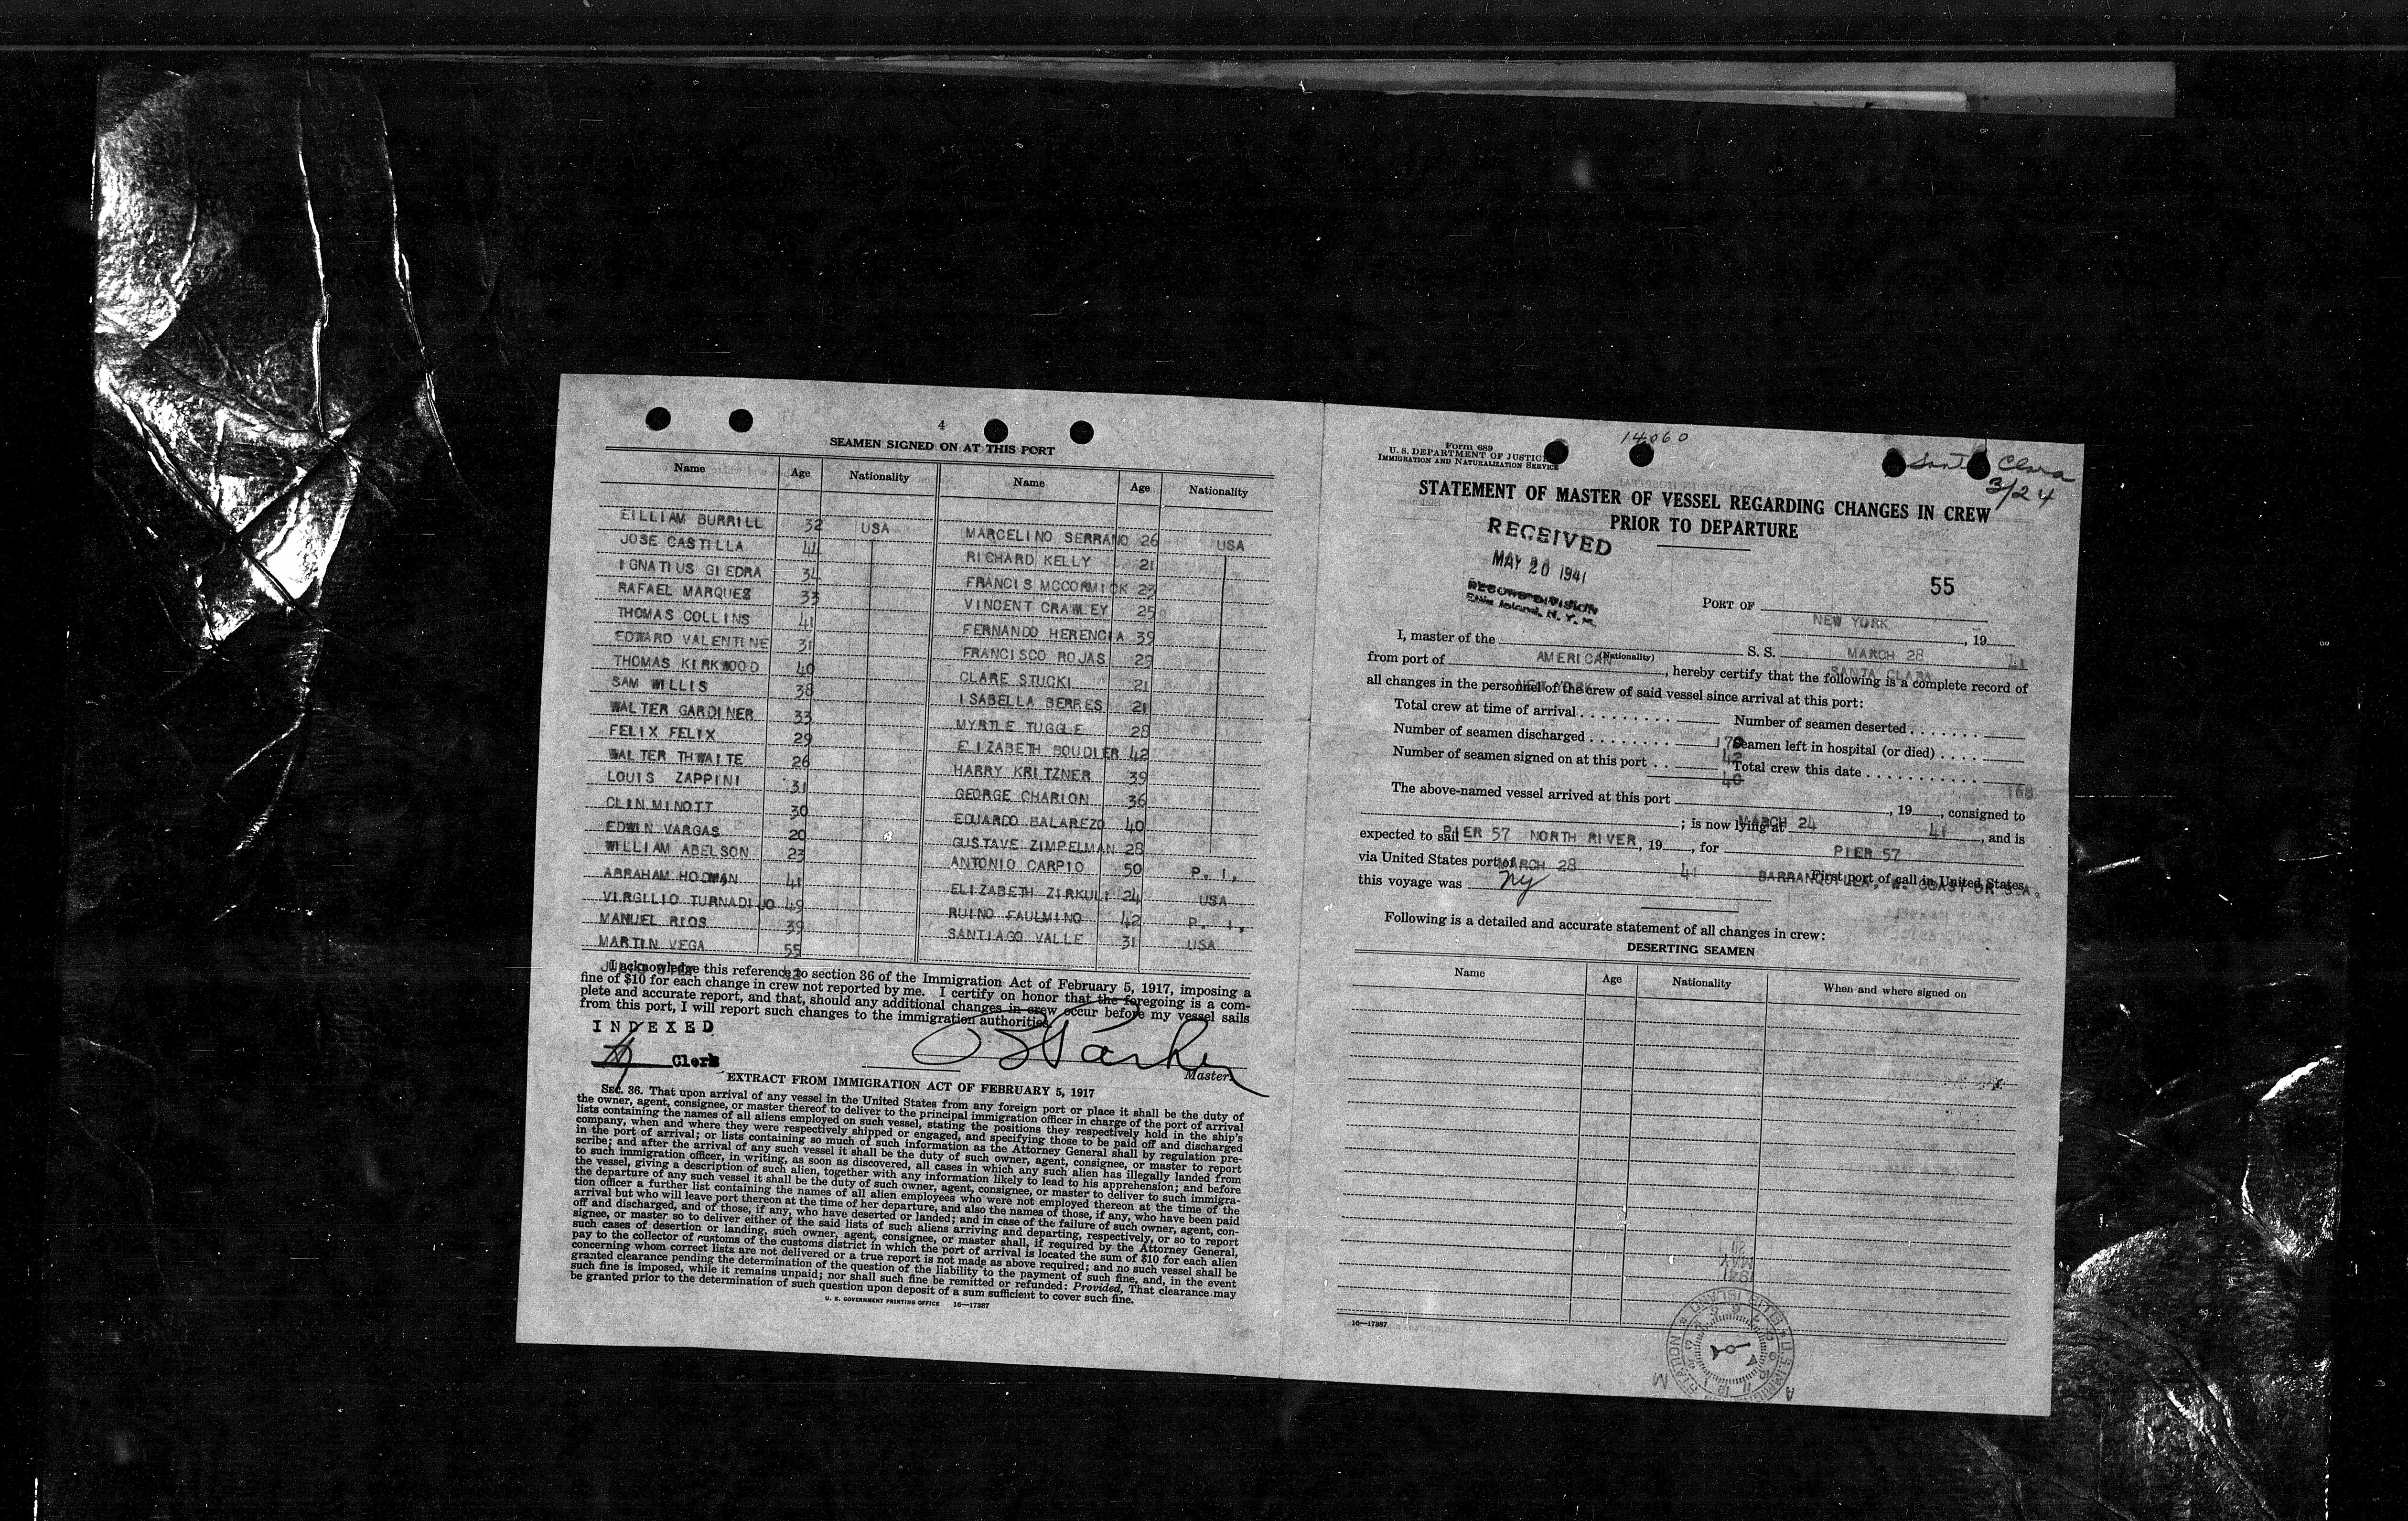 4
SEAMEN SIGNED ON AT THIS PORT
Name Age Nationality Name Age Nationality
EILLIAM BURRILL 32 USA MARCELINO SERRANO 26 USA
JOSE CASTILLA 44 RICHARD KELLY 21
IGNATIUS GIEDRA 34 FRANCIS MCCORMICK 23
RAFAEL MARQUEZ 33 VINCENT CRAWLEY 25
THOMAS COLLINS 41 FERNANDO HERENCIA 39
EDWARD VALENTINE 31 FRANCISCO ROJAS 29
THOMAS KIRKWOOD 40 CLARE STUCKI 21
SAM WILLIS 38 ISABELLA BERRES 21
WALTER GARDINER 33 MYRTLE TUGGLE 28
FELIX FELIX 29 ELIZABETH BOUDIER 42
WALTER THWAITE 26 HARRY KRITZNER 39
LOUIS ZAPPINI 31 GEORGE CHARION 36
CLIN MINOTT 30 EDUARDO BALAREZO 40
EDWIN VARGAS 20 GUSTAVE ZIMPELMAN 28
WILLIAM ABELSON 23 ANTONIO CARPIO 50 P. I.
ABRAHAM HODMAN 41 ELIZABETH ZIRKULI 24 USA
VIRGILIO TURNADIJO 49 RUINO FAULMINO 42 P. I.
MANUEL RIOS 39 SANTIAGO VALLE 31 USA
MARTIN VEGA 55
I acknowledge this reference to section 36 of the Immigration Act of February 5, 1917, imposing a
fine of $10 for each change in crew not reported by me. I certify on honor that the foregoing is a com-
plete and accurate report, and that, should any additional changes in crew occur before my vessel sails
from this port, I will report such changes to the immigration authorities.
INDEXED
Clerk
Parker
Master.
EXTRACT FROM IMMIGRATION ACT OF FEBRUARY 5, 1917
SEC. 36. That upon arrival of any vessel in the United States from any foreign port or place it shall be the duty of
the owner, agent, consignee, or master thereof to deliver to the principal immigration officer in charge of the port of arrival
lists containing the names of all aliens employed on such vessel, stating the positions they respectively hold in the ship's
company, when and where they were respectively shipped or engaged, and specifying those to be paid off and discharged
in the port of arrival; or lists containing so much of such information as the Attorney General shall by regulation pre-
scribe; and after the arrival of any such vessel it shall be the duty of such owner, agent, consignee, or master to report
to such immigration officer, in writing, as soon as discovered, all cases in which any such alien has illegally landed from
the vessel, giving a description of such alien, together with any information likely to lead to his apprehension; and before
the departure of any such vessel it shall be the duty of such owner, agent, consignee, or master to deliver to such immigra-
tion officer a further list containing the names of all alien employees who were not employed thereon at the time of the
arrival but who will leave port thereon at the time of her departure, and also the names of those, if any, who have been paid
off and discharged, and of those, if any, who have deserted or landed; and in case of the failure of such owner, agent, con-
signee, or master so to deliver either of the said lists of such aliens arriving and departing, respectively, or so to report
such cases of desertion or landing, such owner, agent, consignee, or master shall, if required by the Attorney General,
pay to the collector of customs of the customs district in which the port of arrival is located the sum of $10 for each alien
concerning whom correct lists are not delivered or a true report is not made as above required; and no such vessel shall be
granted clearance pending the determination of the question of the liability to the payment of such fine, and, in the event
such fine is imposed, while it remains unpaid; nor shall such fine be remitted or refunded: Provided, That clearance may
be granted prior to the determination of such question upon deposit of a sum sufficient to cover such fine.
U. S. GOVERNMENT PRINTING OFFICE 16—17387
Form 689
U. S. DEPARTMENT OF JUSTICE
IMMIGRATION AND NATURALIZATION SERVICE
14060
Santa Clara
3/24
STATEMENT OF MASTER OF VESSEL REGARDING CHANGES IN CREW
PRIOR TO DEPARTURE
RECEIVED
MAY 20 1941
RECORD DIVISION
Ellis Island, N. Y. H.
55
PORT OF
NEW YORK
, 19
I, master of the S. S. MARCH 28 41
AMERICAN (Nationality)
SANTA CLARA
from port of , hereby certify that the following is a complete record of
NEW YORK
all changes in the personnel of the crew of said vessel since arrival at this port:
Total crew at time of arrival Number of seamen deserted
Number of seamen discharged 170 Seamen left in hospital (or died)
Number of seamen signed on at this port 42 Total crew this date
40 168
The above-named vessel arrived at this port , 19 , consigned to
MARCH 24 41
; is now lying at , and is
expected to sail PIER 57 NORTH RIVER , 19 , for PIER 57
via United States port of MARCH 28 41 First port of call in United States
BARRANQUILLA, W. COAST OF S.A.
this voyage was NY
Following is a detailed and accurate statement of all changes in crew:
DESERTING SEAMEN
Name Age Nationality When and where signed on
16—17387
1941
MAY
20
U. S. IMMIG STATION ELLIS ISLAND